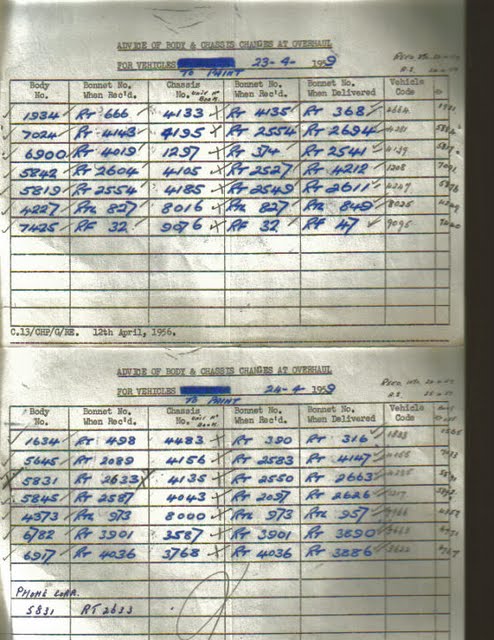 ADVICE OF BODY & CHASSIS CHANGES AT OVERHAUL
FOR VEHICLES 23-4- 1959
TO PAINT
Body No. Bonnet No. When Rec'd. Chassis No. Bonnet No. When Rec'd. Bonnet No. When Delivered Vehicle Code
1934 RT 666 4133 RT 4135 RT 368 2664
7024 RT 4143 4195 RT 2554 RT 2694 4281
6900 RT 4019 1297 RT 374 RT 2541 4139
5842 RT 2604 4105 RT 2527 RT 4212 1208
5819 RT 2554 4185 RT 2549 RT 2611 4247
4227 RTL 827 8016 RTL 827 RTL 849 8025
7425 RF 32 9076 RF 32 RF 47 9095
C.13/CHP/G/RE. 12th April, 1956.
ADVICE OF BODY & CHASSIS CHANGES AT OVERHAUL
FOR VEHICLES 24-4- 1959
TO PAINT
Body No. Bonnet No. When Rec'd. Chassis No. Bonnet No. When Rec'd. Bonnet No. When Delivered Vehicle Code
1634 RT 498 4483 RT 390 RT 316
5645 RT 2089 4156 RT 2583 RT 4147
5831 RT 2633 4135 RT 2550 RT 2663
5845 RT 2587 4043 RT 2097 RT 2626
4373 RTL 973 8000 RTL 973 RTL 957
6782 RT 3901 3587 RT 3901 RT 3890
6917 RT 4036 3768 RT 4036 RT 3886
PHONE CORR.
5831 RT 2633